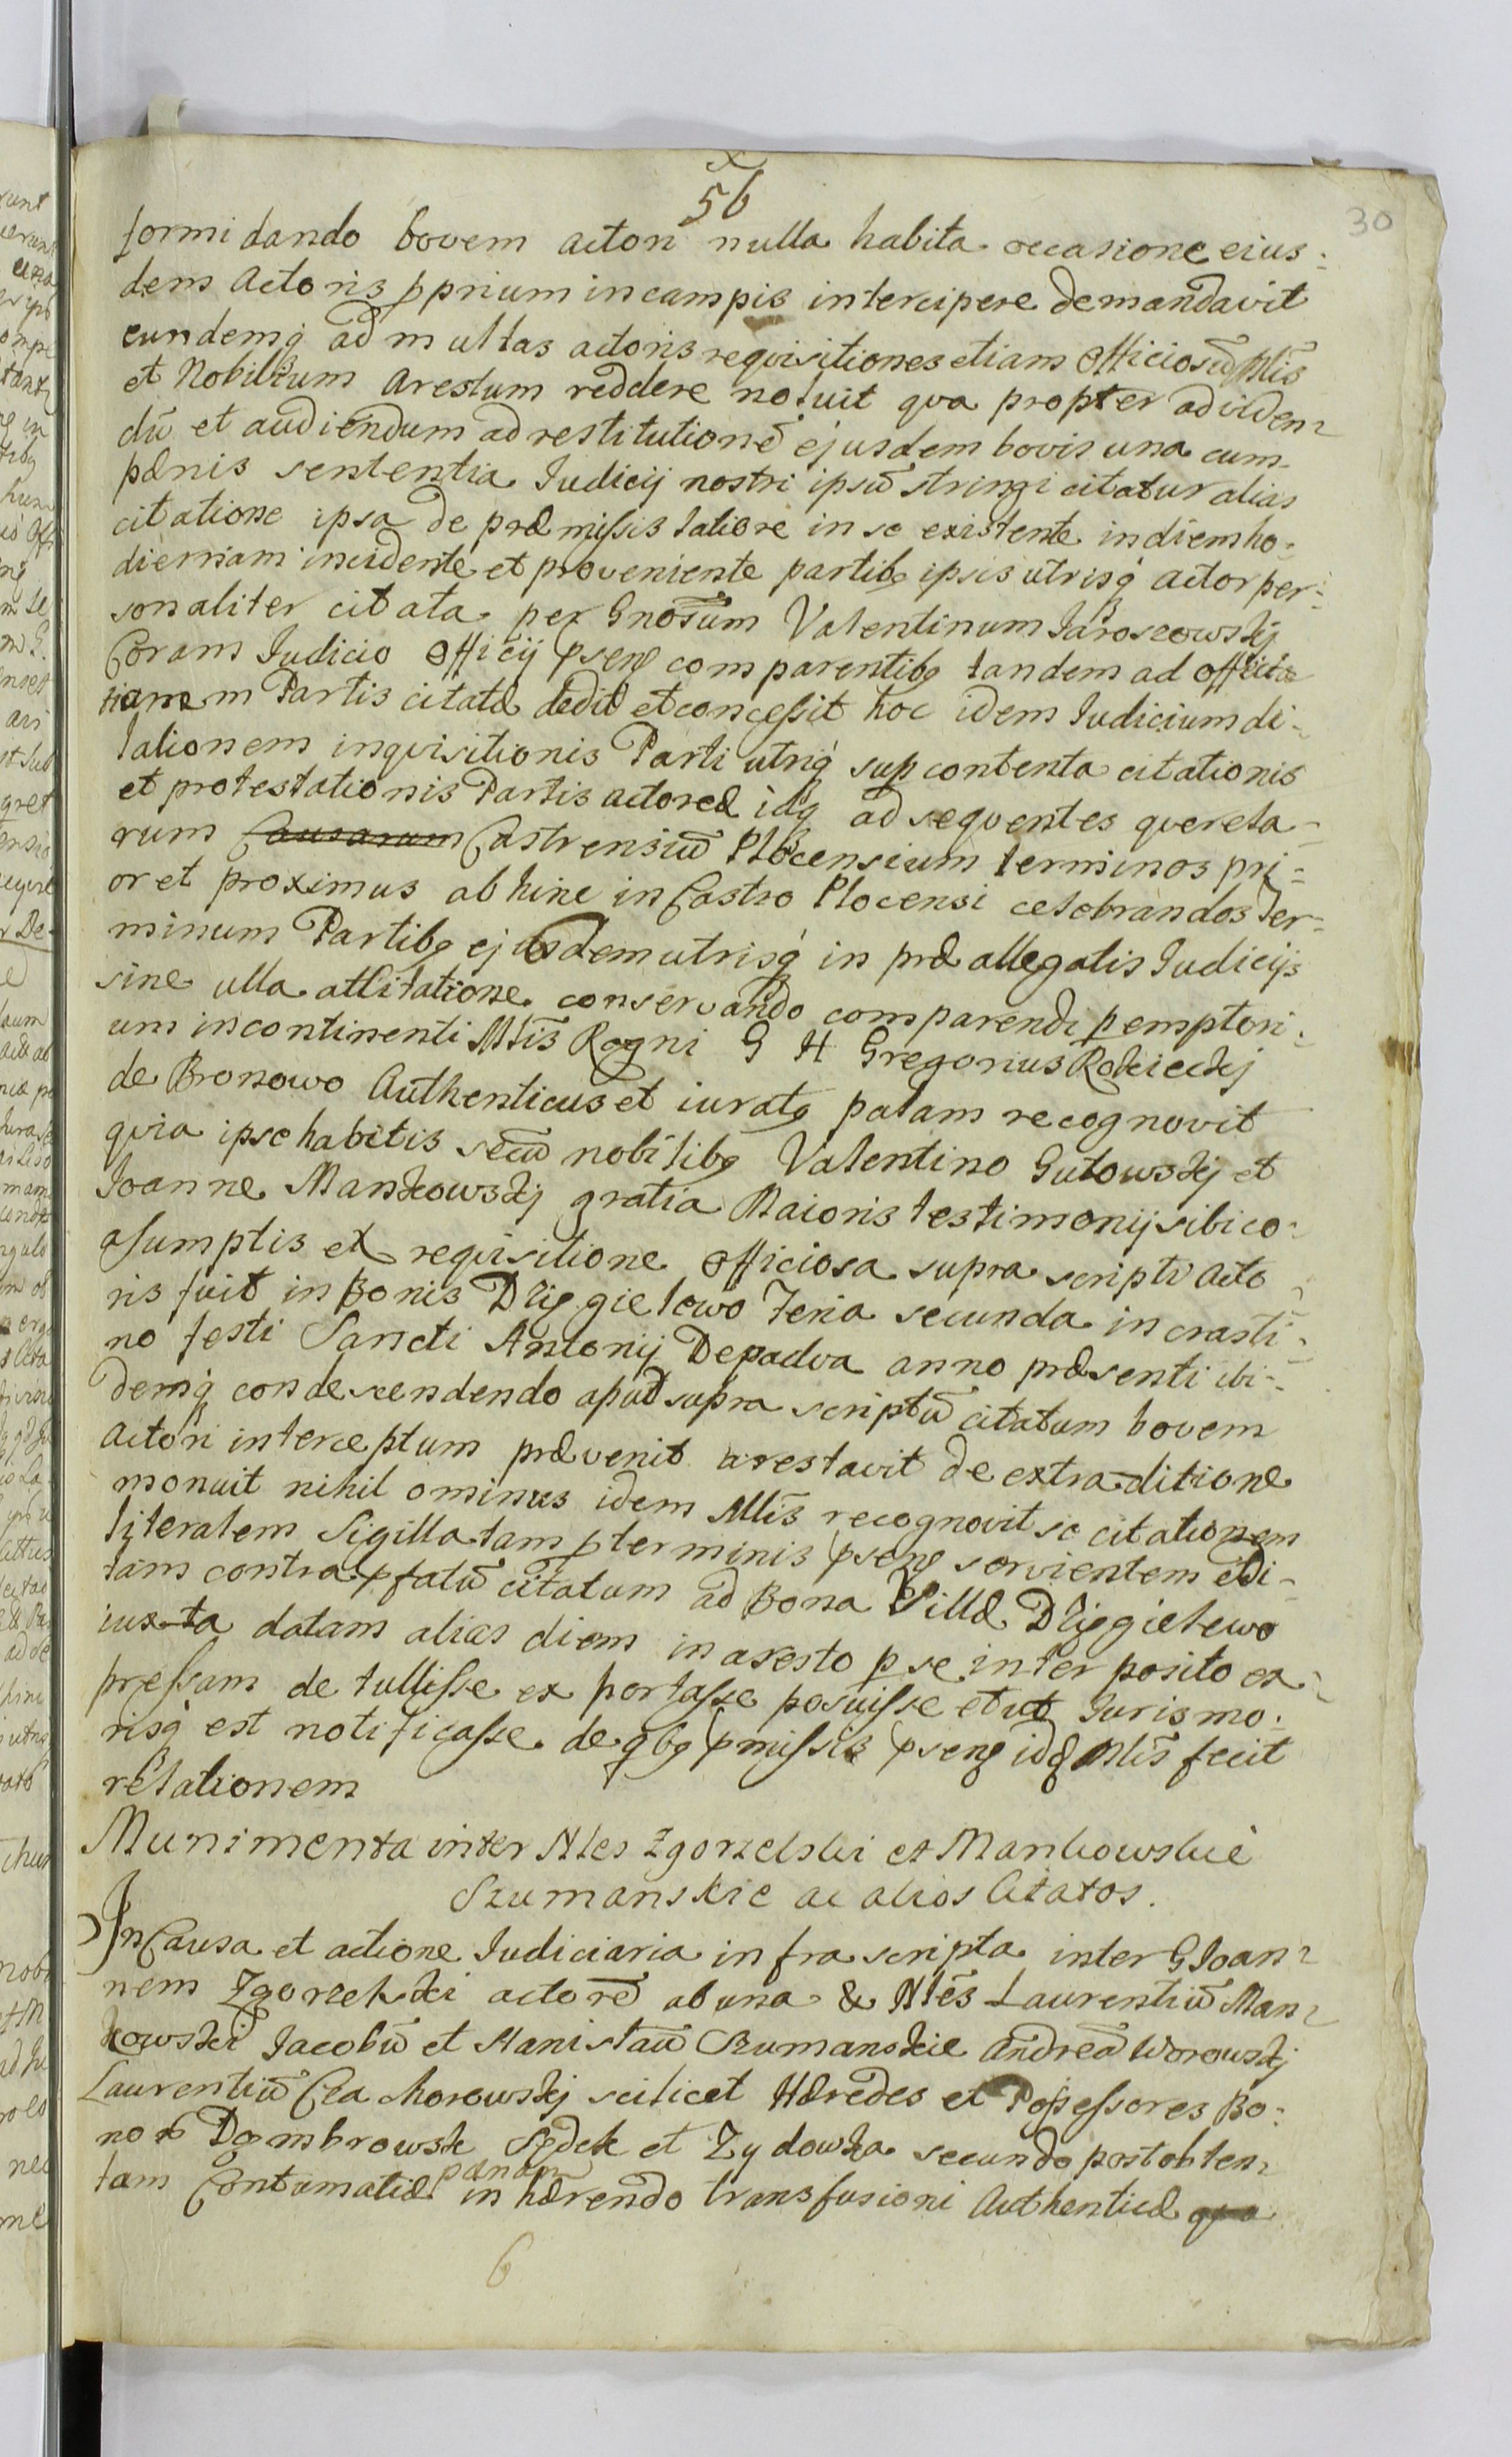 56
30
formidando bovem actori nulla habita occasione eius-
dem Actoris pprium in campis intercipere demandavit
eundemq ad multas actoris requisitiones etiam Officiosũ Mlis
et Nobilium arestum reddere noluit qva propter ad viden-
dũ et audiendum ad restitutionẽ ejusdem bovis una cum
pænis sententia Iudicij nostri ipsũ stringi citatur alias
citatione ipsa de præmissis latiore in se existente in diem ho-
diernam incidente et proveniente partibg ipsis utrisq actor per-
sonaliter citata per Gnosum Valentinum Jaroscowskj
Coram Iudicio Officij pseng comparentibg tandem ad
Partis citatæ dedit et concessit hoc idem Iudicium di-
lationem inqvisitionis Parti utriq sup contenta citationis
et protestationis Partis actoreæ idq ad seqventes qverela-
rum Causarum Castrensiũ Plocensium terminos pri-
or et proximus ab hinc in Castro Plocensi celebrandos Ter-
minum Partibg ejusdem utrisq in præallegatis Iudicijs
sine ulla attitatione conservando comparendi pemptori-
um incontinenti Mlis Regni G H Gregorius Rokickj
de Bronowo Authenticus et iuratg palam recognovit
qvia ipse habitis secũ nobilibg Valentino Gutowskj et
Joanne Mankowskj gratia Maioris testimonij sibi co-
asumptis ex reqvisitione officiosa supra scripti Acto-
ris fuit in Bonis Dłięgielowo Feria secunda in crasti-
no festi Sancti Antonij Depadva anno præsenti ibi-
demq condescendendo apud supra scriptũ citatum bovem
Actori interceptum prævenit arestavit de extraditione
monuit nihil ominus idem Mlis recognovit se citationem
literalem Sigillatam pterminis pseng servientem edi-
tam contra pfatũ citatum ad Bona Villæ Dłięgielewo
iuxta datam alias diem in aresto p se interposito ex-
pressam detullisse exportasse posuisse et ut Juris mo-
risq est notificasse de qbg pmissis pseng idq Mlis fecit
relationem
Munimenta inter Nles Zgorzelski et Mankowskie
Szumanskie ac alios Citatos.
In Causa et actione Iudiciaria infra scripta inter G Ioan-
nem Zgorzelski actorẽ ab una & Nlẽs Laurentiũ Man-
kowski Jacobũ et Stanislaũ Szumanskie Andreã Worowskj
Laurentiũ Chorowskj scilicet Hæredes et Possessores Bo-
nor Dombrowsk Sędek et Zydowka secundo post obten-
tam Contumatiæ pænam in hærendo transfusioni Authenticæ
6